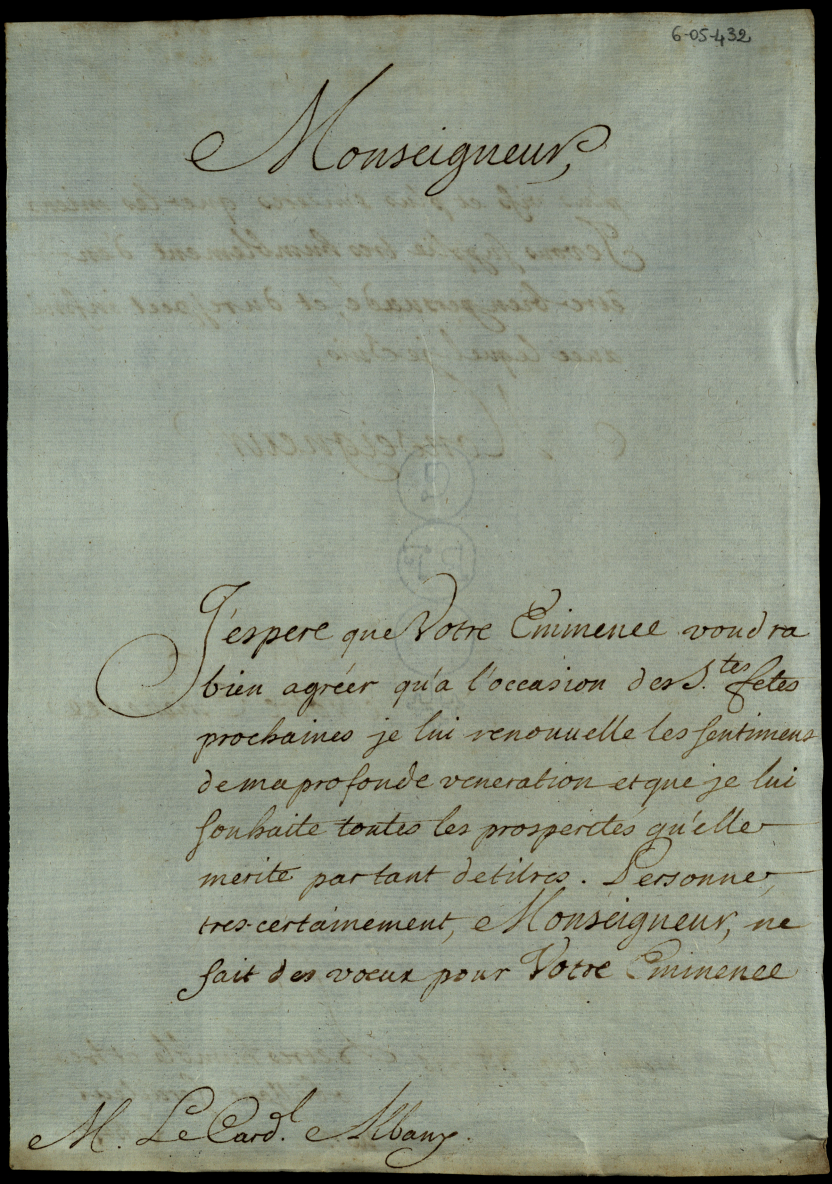 6-05-432
Monseigneur,
J'espere que Votre Eminence voudra
bien agréer qu'a l'occasion des S.tes fetes
prochaines je lui renouuelle les sentimens
de ma profonde veneration et que je lui
souhaite toutes les prosperités qu'elle
merite par tant de titres. Personne,
tres certainement, Monseigneur, ne
fait des vœux pour Votre Eminence
M. Le Card.l Albany.